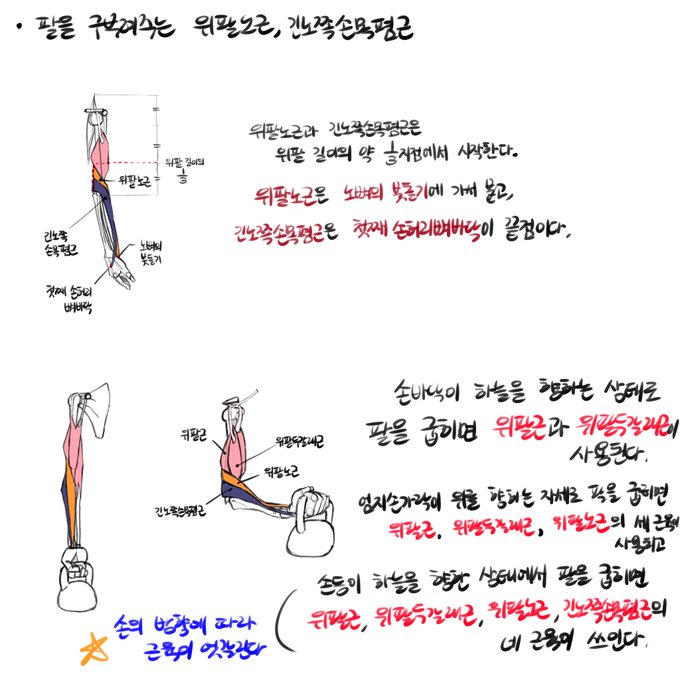 • 팔을 구부려주는 위팔노근, 긴노쪽손목폄근
위팔노근과 긴노쪽손목폄근은
위팔 길이의 약 1/3지점에서 시작한다.
위팔노근은 노뼈의 붓돌기에 가서 붙고,
긴노쪽손목폄근은 첫째 손허리뼈바닥이 끝점이다.
위팔 길이의
1/3
위팔노근
긴노쪽
손목폄근
노뼈의
붓돌기
첫째 손허리
뼈바닥
손바닥이 하늘을 향하는 상태로
팔을 굽히면 위팔근과 위팔두갈래근이
사용된다.
위팔근
위팔두갈래근
위팔노근
긴노쪽손목폄근
엄지손가락이 위를 향하는 자세로 팔을 굽히면
위팔근, 위팔두갈래근, 위팔노근의 세 근육이
사용되고
손등이 하늘을 향한 상태에서 팔을 굽히면
위팔근, 위팔두갈래근, 위팔노근, 긴노쪽손목폄근의
네 근육이 쓰인다.
손의 방향에 따라
근육이 엇갈린다